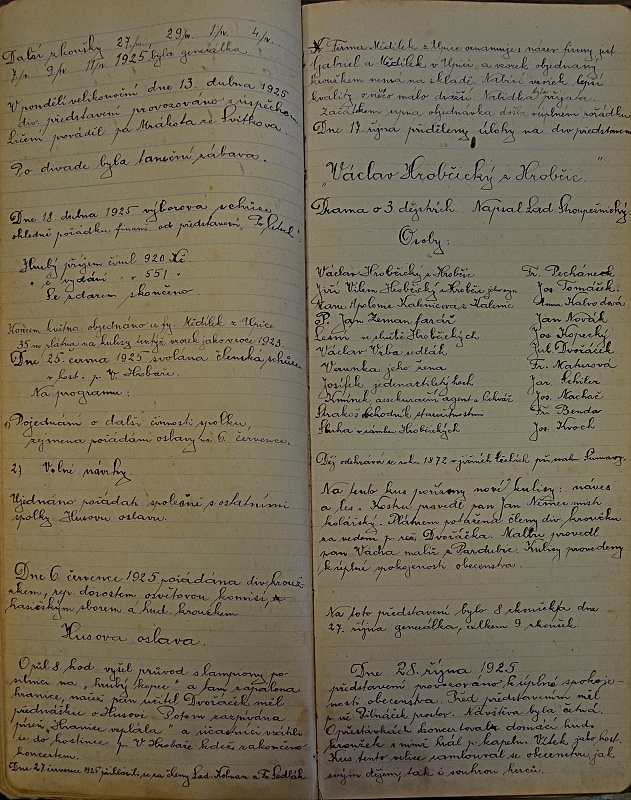 Další zkoušky 27./III., 29/III. 1/IV. 4/IV.
7/IV. 9/IV. 11/IV. 1925 byla generálka
V pondělí velikonoční dne 13. dubna 1925
div. představení provozováno s úspěchem
Líčení prováděl pá Mrákota ze Svítkova.
Po divadle byla taneční zábava.
Dne 18. dubna 1925 výborová schůze
ohledně pořádku financ. od představení
Hrubý příjem činil 920 Kč
" č vydání " 551 "
Se zdarem skončeno
Koncem května objednáno u fy. Nědílek z Úpice
35 m plátna na kulisy téhož vzorek jako v roce 1923.
Dne 25. června 1925 svolána členská schůze
v host. p. V. Hobaře.
Na programu:
1) Pojednání o další činnosti spolku,
zejména pořádání oslavy na 6. července.
2) Volné návrhy.
Ujednáno pořádati společně s ostatními
spolky Husovu oslavu.
Dne 6. července 1925 pořádána div. krouž-
kem, rep. dorostem osvětovou komisí,
hasičským sborem a hud. kroužkem
Husova oslava.
O půl 8 hod. vyšel průvod s lampiony po
silnici na "hrubý kopec" a tam zapálena
hranice, načež pan učitel Dvořáček měl
přednášku o Husovi. Potom zazpívána
píseň "Hranice vzplála" a účastníci vrátili
se do hostince p. V. Hobaře kdež zakončeno
koncertem.
Dne 27. července 1925 přihlásili se za členy Lad. Kohman a Fr. Sedlák
Firma Nědílek z Úpice oznamuje, název firmy jest
Gabriel a Nědílek v Úpici a vzorek objednaný
kroužkem nemá na skladě. Nabízí vzorek lepší
kvality o něco málo dražší. Nabídka přijata.
Začátkem srpna objednávka došla v úplném pořádku
Dne 17. srpna přiděleny úlohy na div. představení
"Václav Hrobčický z Hrobčic."
Drama o 3. dějstvích. Napsal Lad. Stroupežnický.
Osoby:
Václav Hrobčický z Hrobčic Fr. Pecháneck
Jiří Vilém Hrobčický z Hrobčic jeho syn Jos. Tomášek.
Apolonie Kalenicová z Kalenic Anna Kalvodová
P. Jan Zeman farář Jan Novák
Lesní ve službě Hrobčických Jos. Kopecký
Václav Vrba sedlák Jul. Dvořáček
Verunka jeho žena Fr. Naturová
Josífek jedenáctiletý hoch Jar. Schiler
assekurační agent a lichvář Jos. Nachač
Strakoš obchodník starožitnostmi Fr. Benda
Sluha v zámku Hrobčických Jos. Kroch
Děj odehrává se roku 1872 v jižních Čechách při úpatí Šumavy.
Na tento kus pořízeny nové kulisy: náves
a les. Kostru provedl pan Jan Němec mistr
kolářský. Plátnem potažena členy div. kroužku
za vedení p. rež. Dvořáčka. Malbu provedl
pan Vácha malíř z Pardubic. Kulisy provedeny
k úplné spokojenosti obecenstva.
Na toto představení bylo 8 zkoušek a dne
27. října generálka, celkem 9 zkoušek
Dne 28. října 1925
představení provozováno k úplné spokoje-
nosti obecenstva. Před představením měl
p. uč. Pilnáček proslov. Návštěva byla četná.
O přestávkách koncertoval domácí hud.
kroužek s nímž hrál p. kapeln. Vítek jako host.
Kus tento velice zamlouval se obecenstvu, jak
svým dějem, tak i souhrou herců.